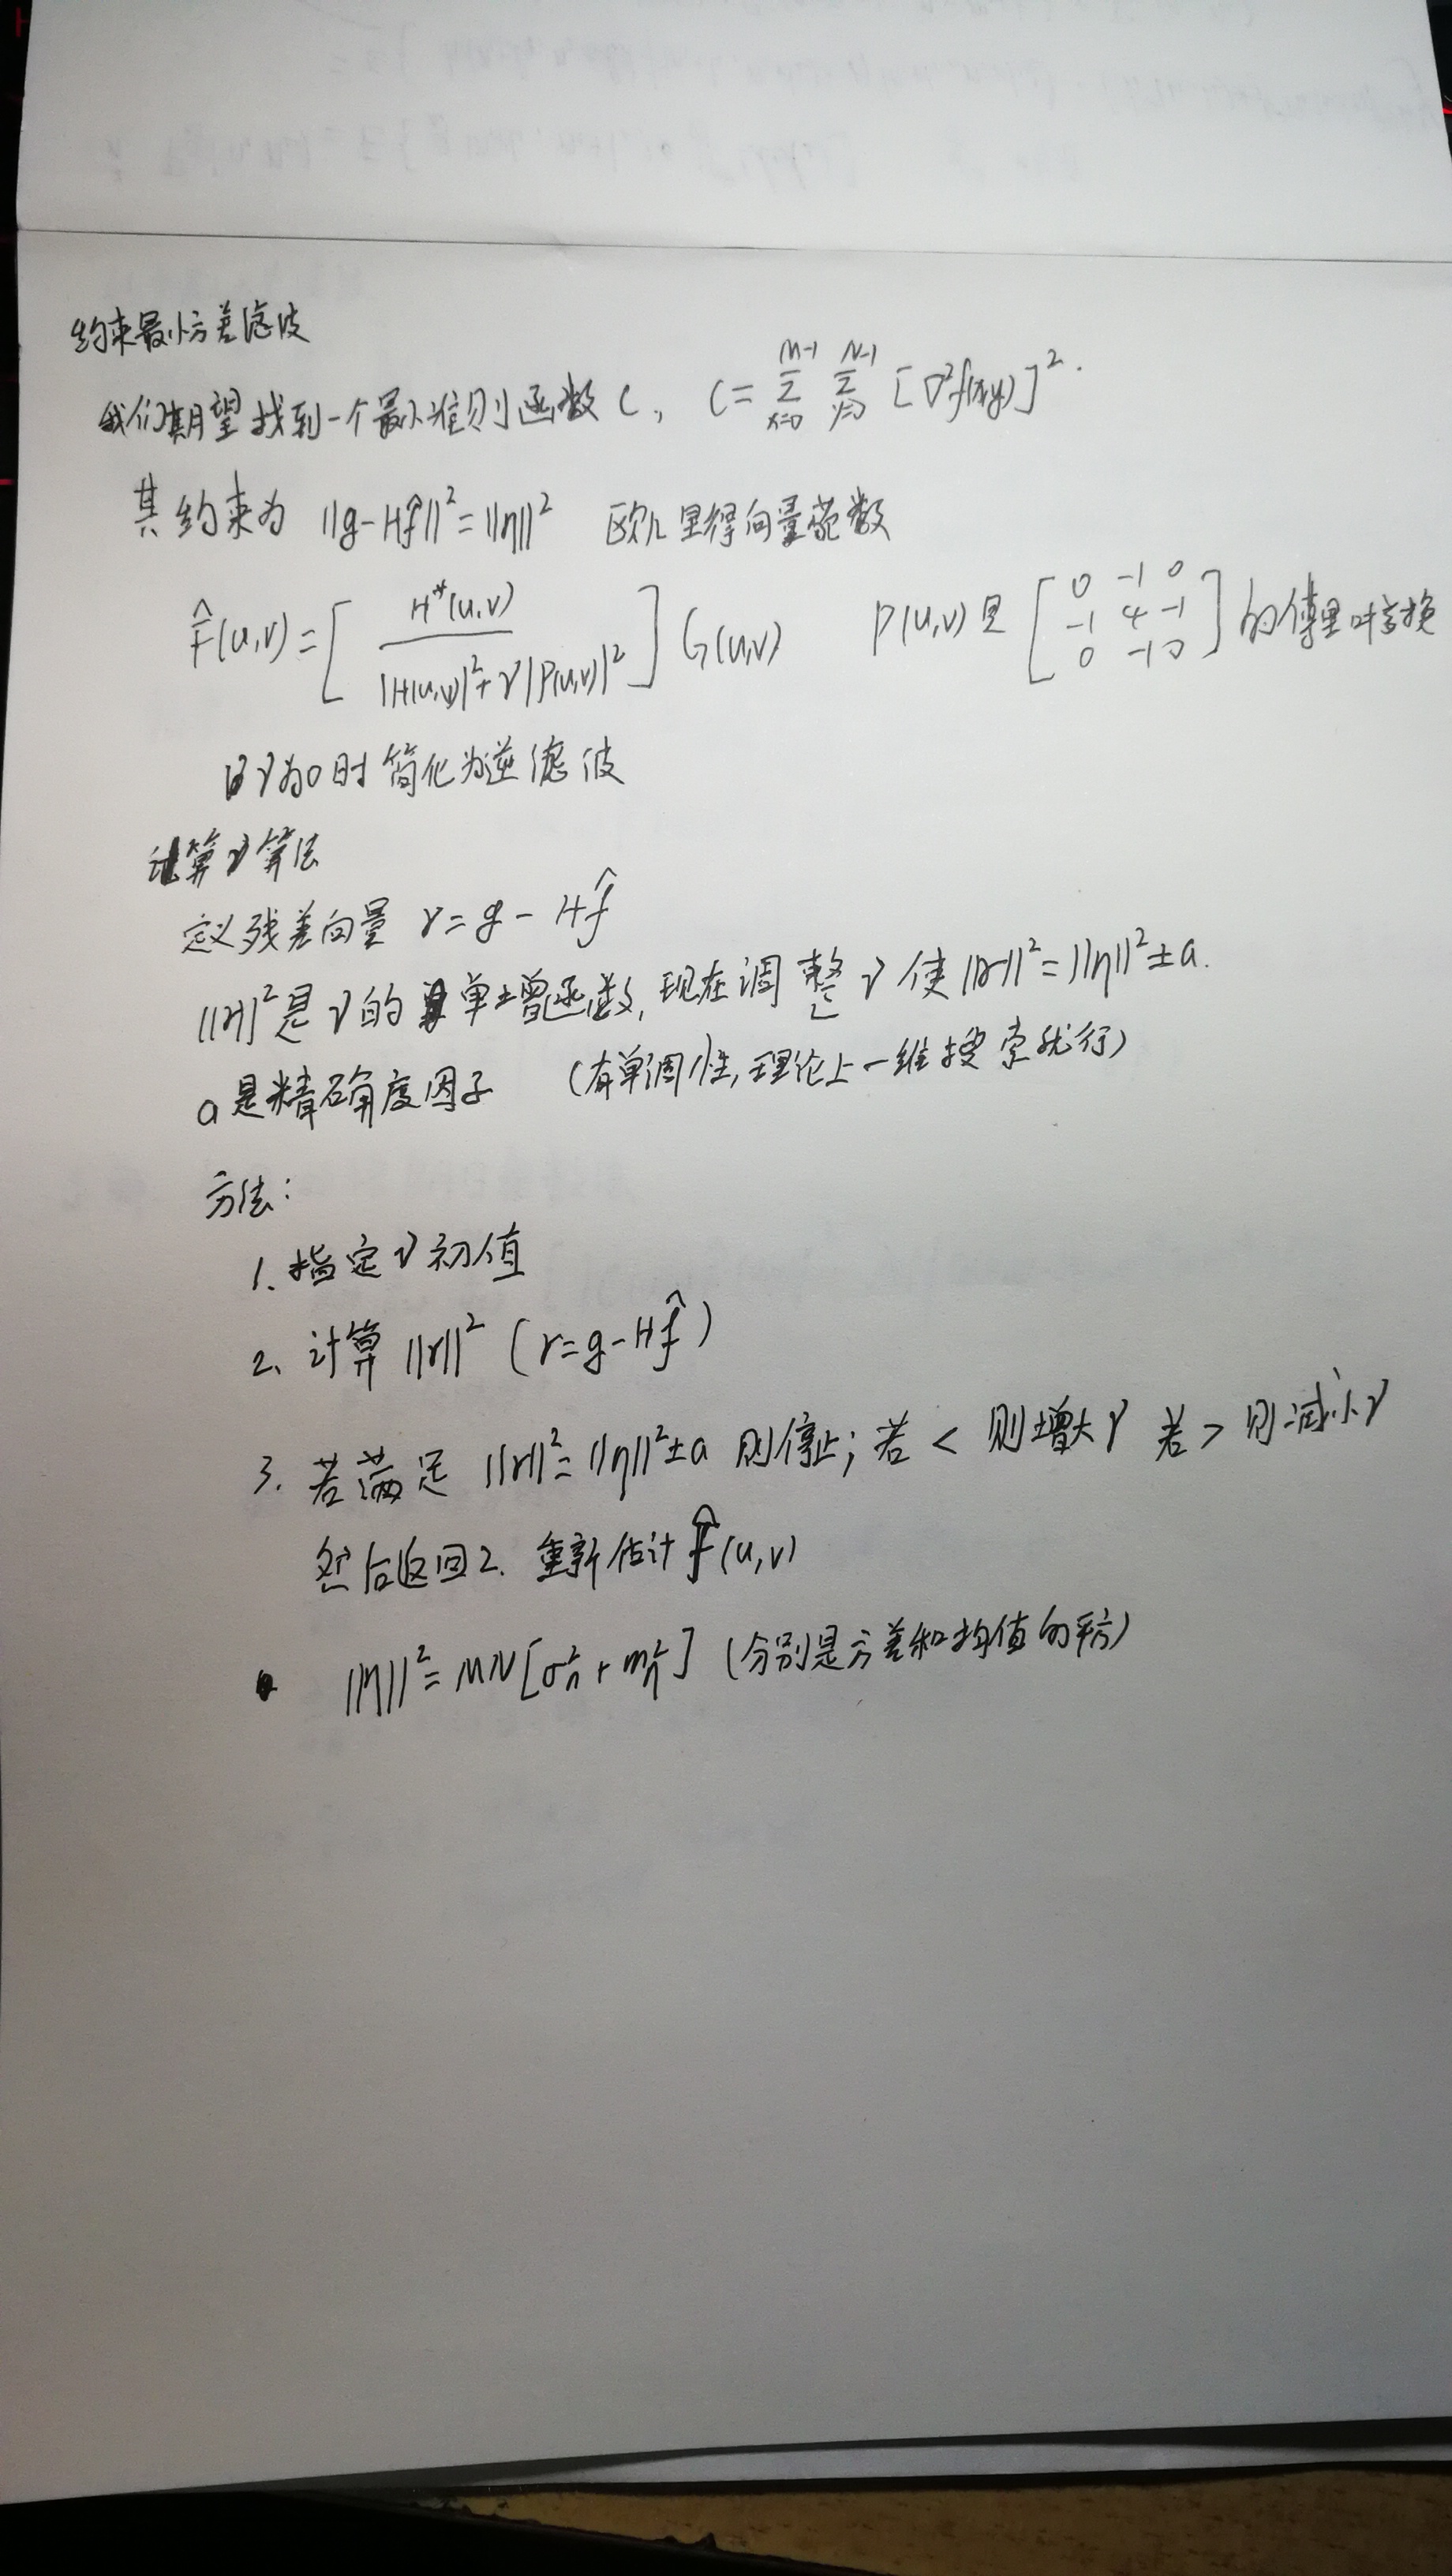 约束最小方差滤波
我们期望找到一个最小准则函数 C, C = Σ_{x=0}^{M-1} Σ_{y=0}^{N-1} [∇²f(x,y)]².
其约束为 ||g-Hf̂||² = ||η||² 欧几里得向量范数
F̂(u,v) = [ H*(u,v) / (|H(u,v)|² + γ|P(u,v)|²) ] G(u,v) P(u,v)是 [0 -1 0; -1 4 -1; 0 -1 0] 的傅里叶变换
γ为0时简化为逆滤波
计算γ算法
定义残差向量 r = g - Hf̂
||r||²是γ的单增函数,现在调整γ使||r||² = ||η||² ± a.
a是精确度因子 (有单调性,理论上一维搜索就行)
方法:
1. 指定γ初值
2. 计算 ||r||² (r=g-Hf̂)
3. 若满足 ||r||² = ||η||² ± a 则停止; 若 < 则增大γ 若 > 则减小γ
然后返回2. 重新估计 F̂(u,v)
||η||² = MN[σ²η + m²η] (分别是方差和均值的平方)